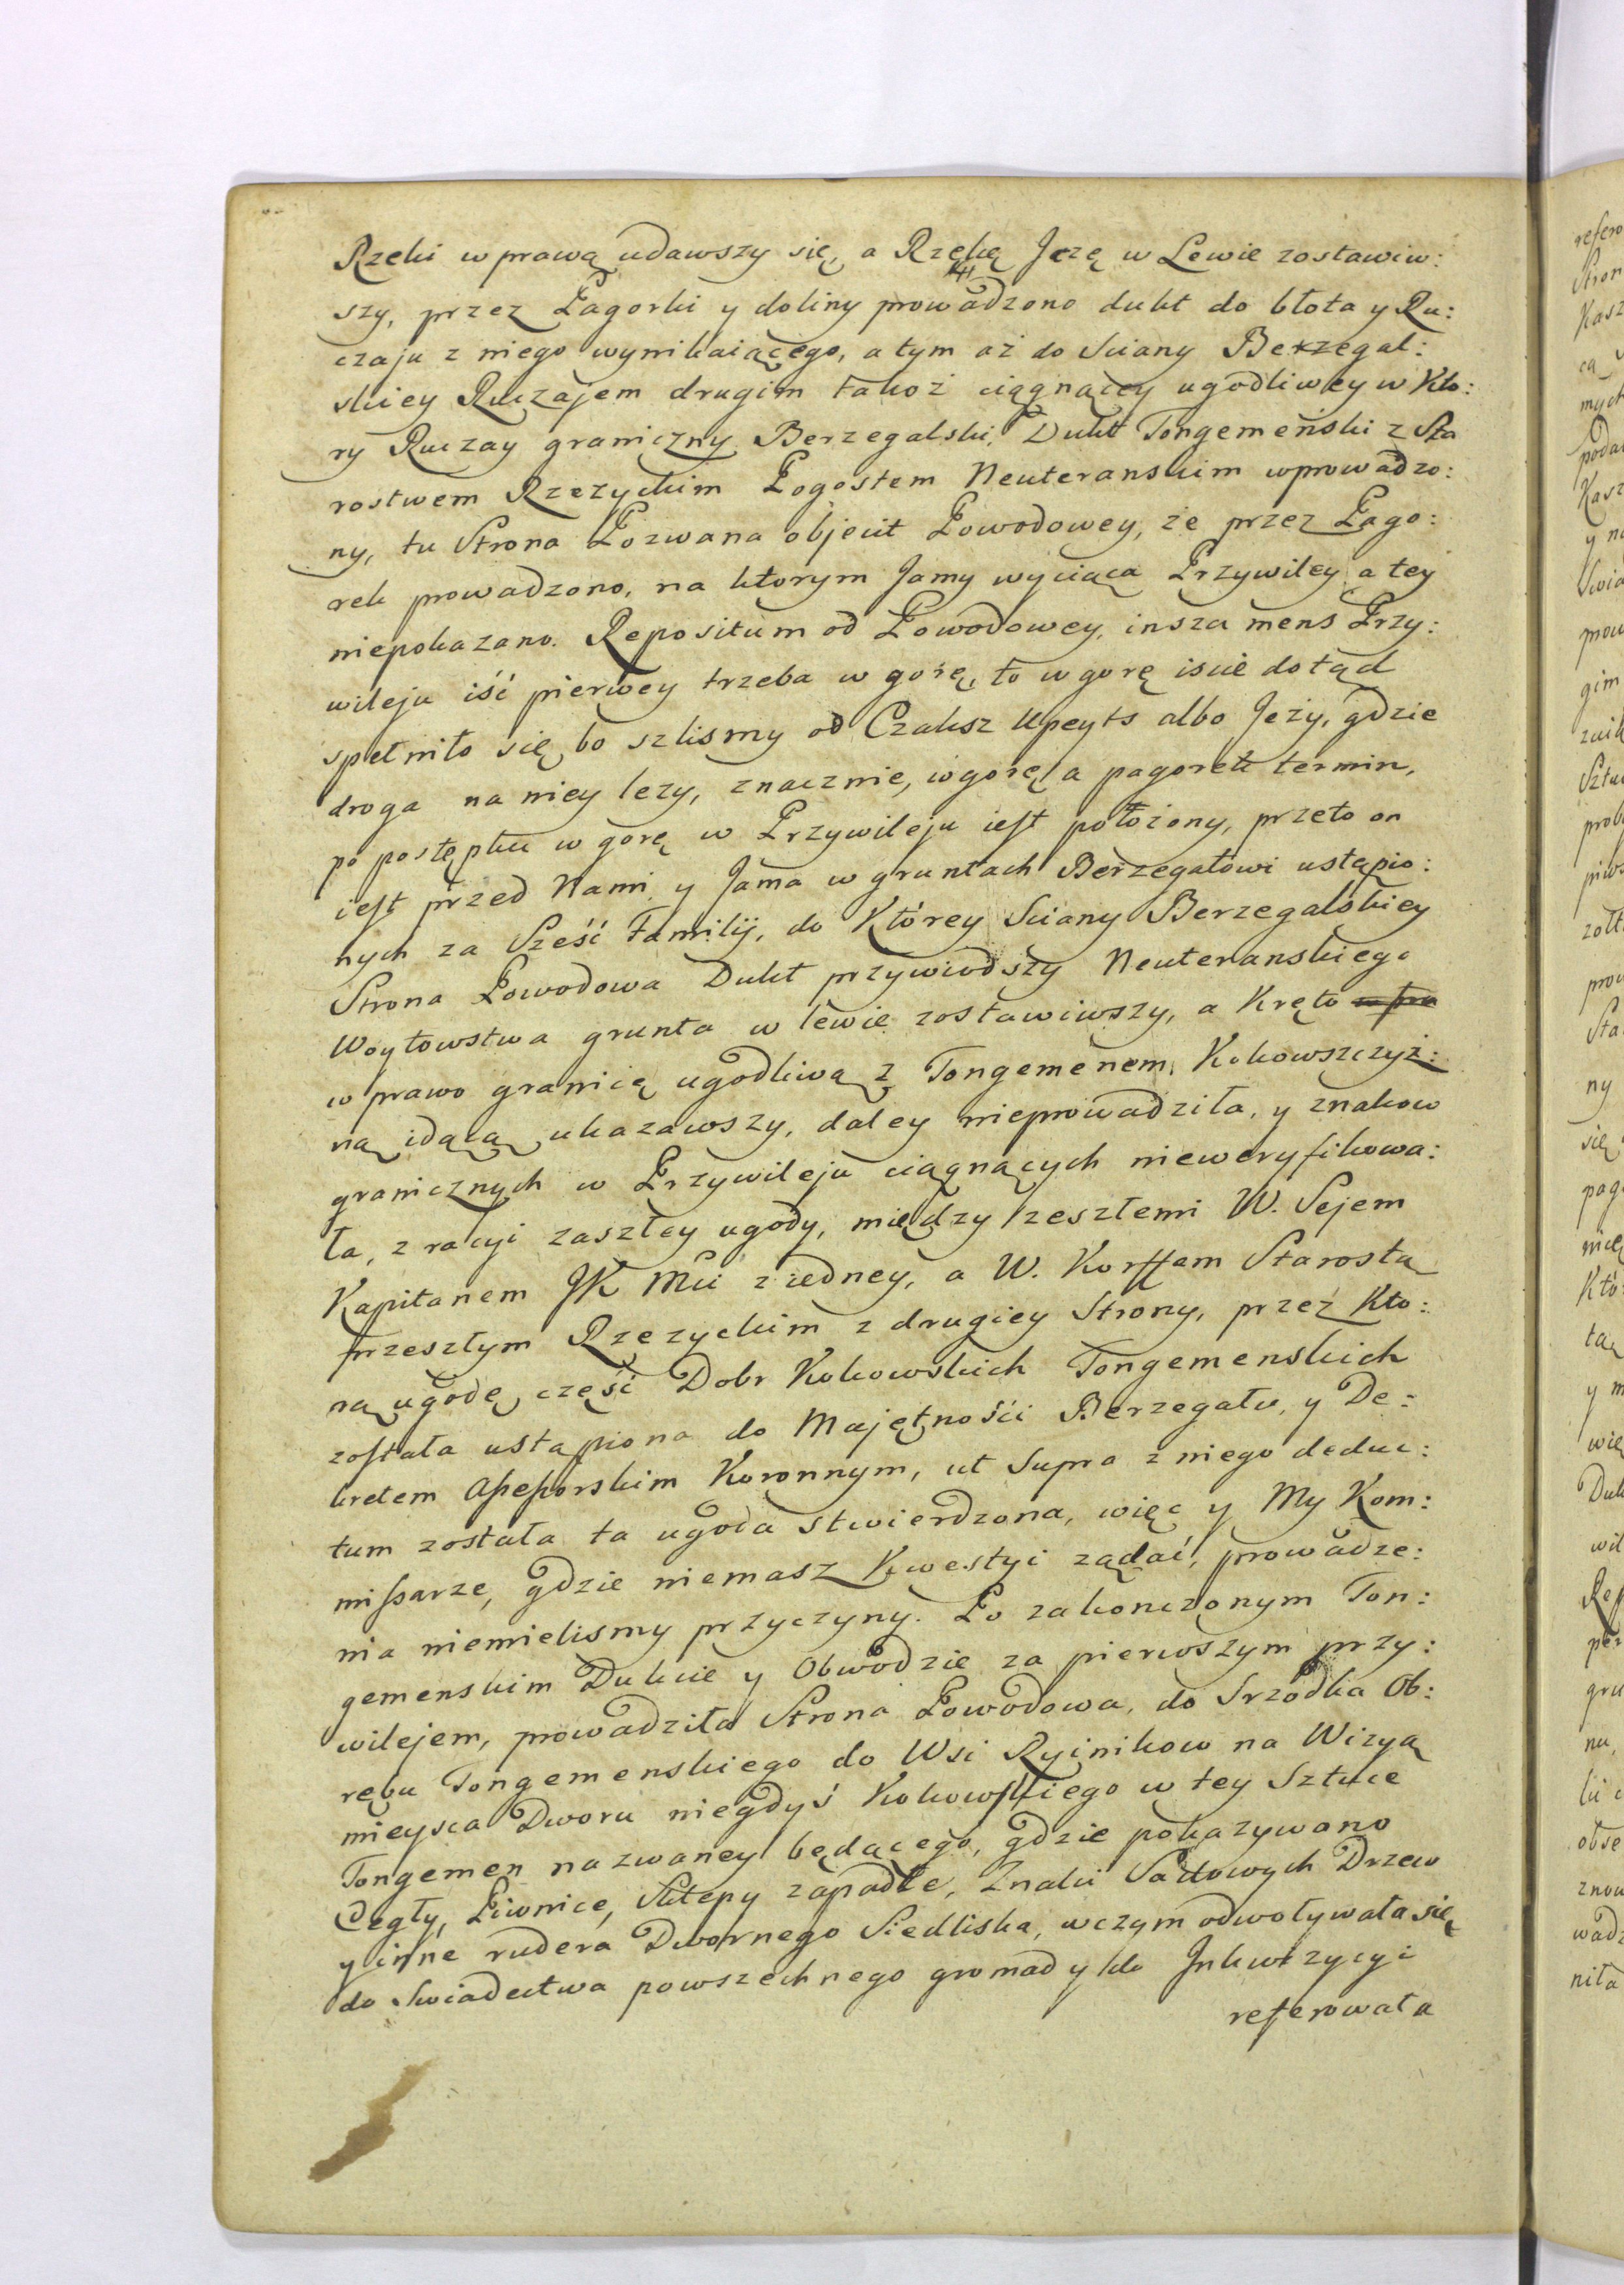 Rzeki w prawą udawszy się, a Rzekę Jezę w Lewie zostawiw:
szy, przez Pagorki y doliny prowadzono dukt do błota y Ru:
czaju z niego wynikaiącego, a tym aż do Sciany Berzegal:
skiey Ruczajem drugim takoż ciągnącey ugodliwey w Kto:
ry Ruczay graniczny Berzegalski, Dukt Tongemeński z Sta
rostwem Rzezyckim Pogostem Neuteranskim wprowadzo:
ny, tu Strona Pozwana objecit Powodowey, że przez Pago:
rek prowadzono, na ktorym Jamy wyciąca Przywiley a tey
niepokazano. Repositum od Powodowey, insza mens Przy:
wileju iść pierwey trzeba w gorę, to w gorę iscie dotąd
spełniło się, bo szlismy od Czaksz Upeyts albo Jeży, gdzie
droga na niey lezy, znacznie, w gorę, a pagorek termin,
po postępku w gorę w Przywileju iest położony, przeto on
iest przed Nami y Jama w gruntach Berzegałowi ustąpio:
nych za Sześć Familij, do Którey Sciany Berzegalskiey
Strona Powodowa Dukt przywiodszy Neuteranskiego
Woytowstwa grunta w lewie zostawiwszy, a Kręto w pra
w prawo granicą ugodliwą z Tongemenem, Kokowszczyż:
ną idącą ukazawszy, daley nieprowadziła, y znakow
granicznych w Przywileju ciągnących nieweryfikowa:
ła, z racyi zaszłey ugody, między zeszłemi W. Sejem
Kapitanem JK Mci z iedney, a W. Korffem Starostą
przeszłym Rzezyckim z drugiey Strony, przez Kto:
rą ugodę część Dobr Kokowskich Tongemenskich
została ustąpiona do Majętności Berzegału, y De:
kretem Assessorskim Koronnym, ut Supra z niego deduc:
tum została ta ugoda stwierdzona, więc y My Kom:
missarze, gdzie niemasz Kwestyi ządać, prowadze:
nia niemielismy przyczyny. Po zakonczonym Ton:
gemenskim Dukcie y Obwodzie za pierwszym przy:
wilejem, prowadziła Strona Powodowa, do Srzodka Ob:
rębu Tongemenskiego do Wsi Ryinikow na Wizyą
mieysca Dworu niegdyś Kokowskiego w tey Sztuce
Tongemen nazwaney będącego, gdzie pokazywano
Cegły, Piwnice, Sklepy zapadłe, Znaki Sadowych Drzew
y inne rudera Dwornego Siedliska, w czym odwoływała się
do Swiadectwa powszechnego gromady do Inkwizycyi
referowała